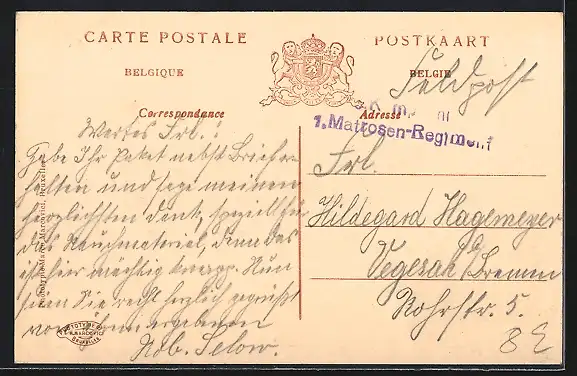 CARTE POSTALE
POSTKAART
BELGIQUE
BELGIE
Feldpost
Correspondance
Adresse
1. Matrosen-Regiment
Wertes Frl.!
Habe Ihr Paket nebst Brief er-
halten und sage meinen
herzlichsten Dank, speziell für
das Rauchmaterial, denn das
ist hier mächtig knapp. Nun
seien Sie recht herzlich gegrüßt
von Ihrem ergebenen
Rob. Selow.
Frl.
Hildegard Hagemeyer
Vegesak / Bremen
Rohrstr. 5.
Marcovici, Bruxelles